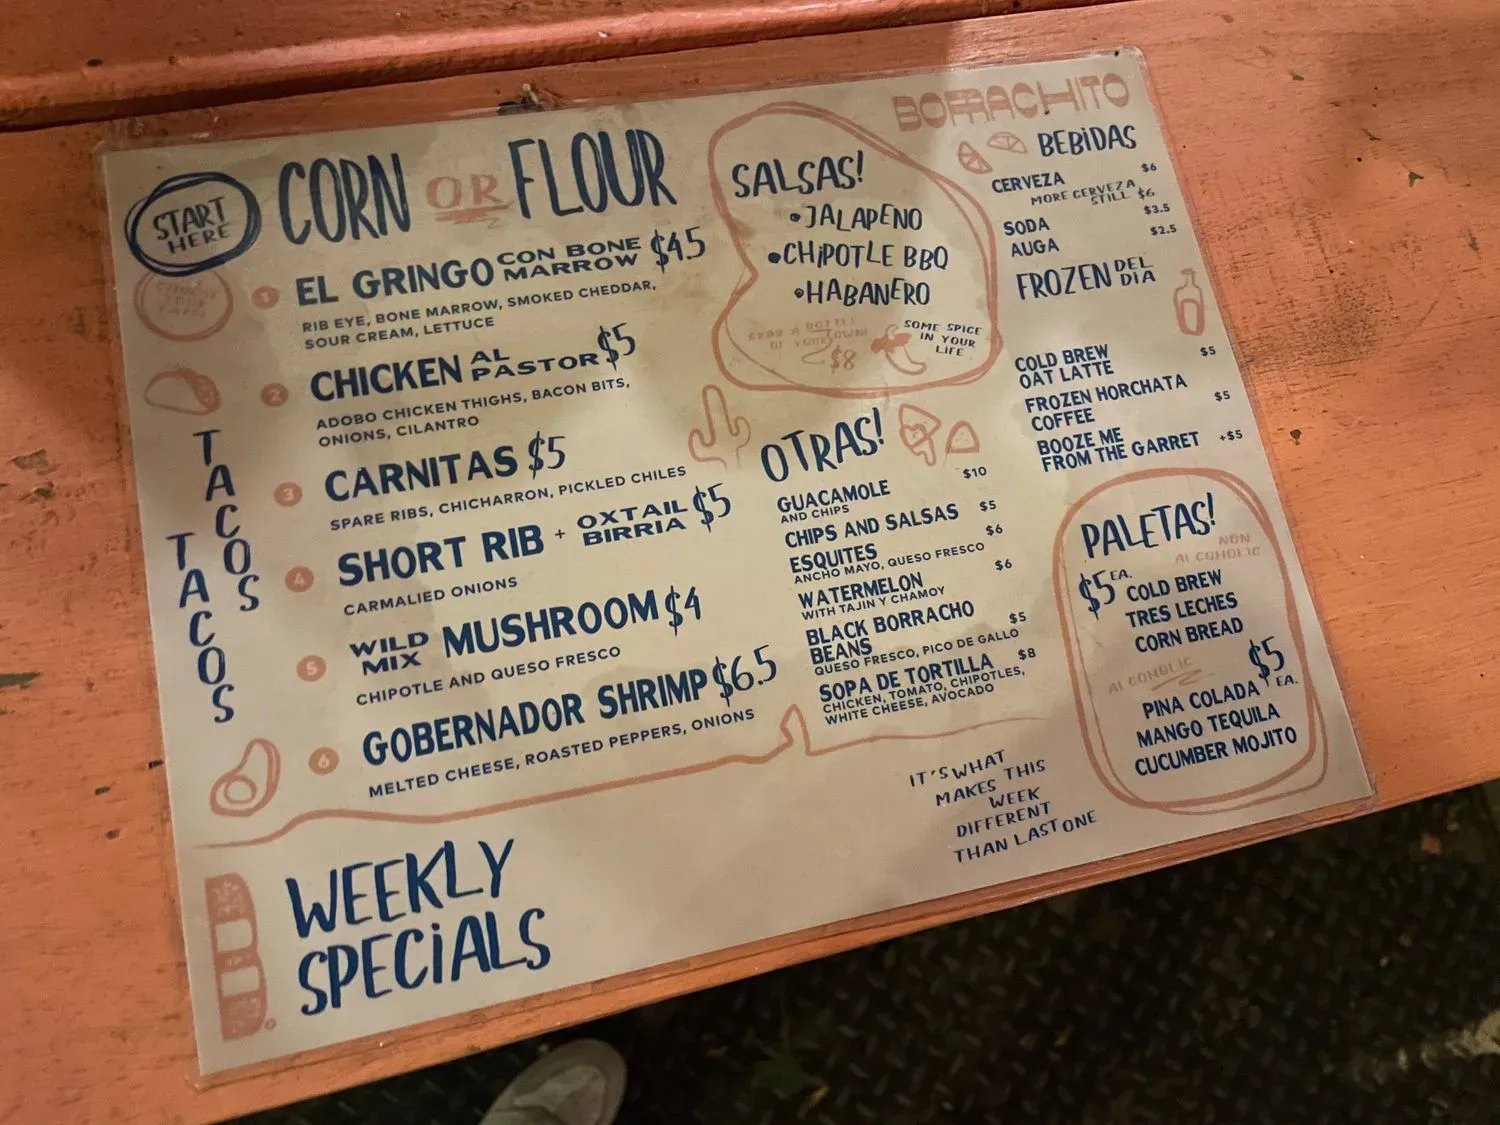 BORRACHITO
START
HERE
CORN OR FLOUR
CHOOSE
YOUR
TACOS
TACOS
1 EL GRINGO CON BONE MARROW $4.5
RIB EYE, BONE MARROW, SMOKED CHEDDAR,
SOUR CREAM, LETTUCE
2 CHICKEN AL PASTOR $5
ADOBO CHICKEN THIGHS, BACON BITS,
ONIONS, CILANTRO
3 CARNITAS $5
SPARE RIBS, CHICHARRON, PICKLED CHILES
4 SHORT RIB + OXTAIL BIRRIA $5
CARMALIED ONIONS
5 WILD MIX MUSHROOM $4
CHIPOTLE AND QUESO FRESCO
6 GOBERNADOR SHRIMP $6.5
MELTED CHEESE, ROASTED PEPPERS, ONIONS
SALSAS!
•JALAPENO
•CHIPOTLE BBQ
•HABANERO
GRAB A BOTTLE
OF YOUR OWN!
$8
SOME SPICE
IN YOUR
LIFE
OTRAS!
GUACAMOLE $10
AND CHIPS
CHIPS AND SALSAS $5
ESQUITES $6
ANCHO MAYO, QUESO FRESCO
WATERMELON $6
WITH TAJIN Y CHAMOY
BLACK BORRACHO
BEANS $5
QUESO FRESCO, PICO DE GALLO
SOPA DE TORTILLA $8
CHICKEN, TOMATO, CHIPOTLES,
WHITE CHEESE, AVOCADO
BEBIDAS
CERVEZA $6
MORE CERVEZA
STILL $6
SODA $3.5
AUGA $2.5
FROZEN DEL DIA
COLD BREW $5
OAT LATTE
FROZEN HORCHATA $5
COFFEE
BOOZE ME +$5
FROM THE GARRET
PALETAS!
NON
ALCOHOLIC
$5 EA.
COLD BREW
TRES LECHES
CORN BREAD
ALCOHOLIC
$5 EA.
PINA COLADA
MANGO TEQUILA
CUCUMBER MOJITO
WEEKLY
SPECIALS
IT'S WHAT
MAKES THIS
WEEK
DIFFERENT
THAN LAST ONE
B.